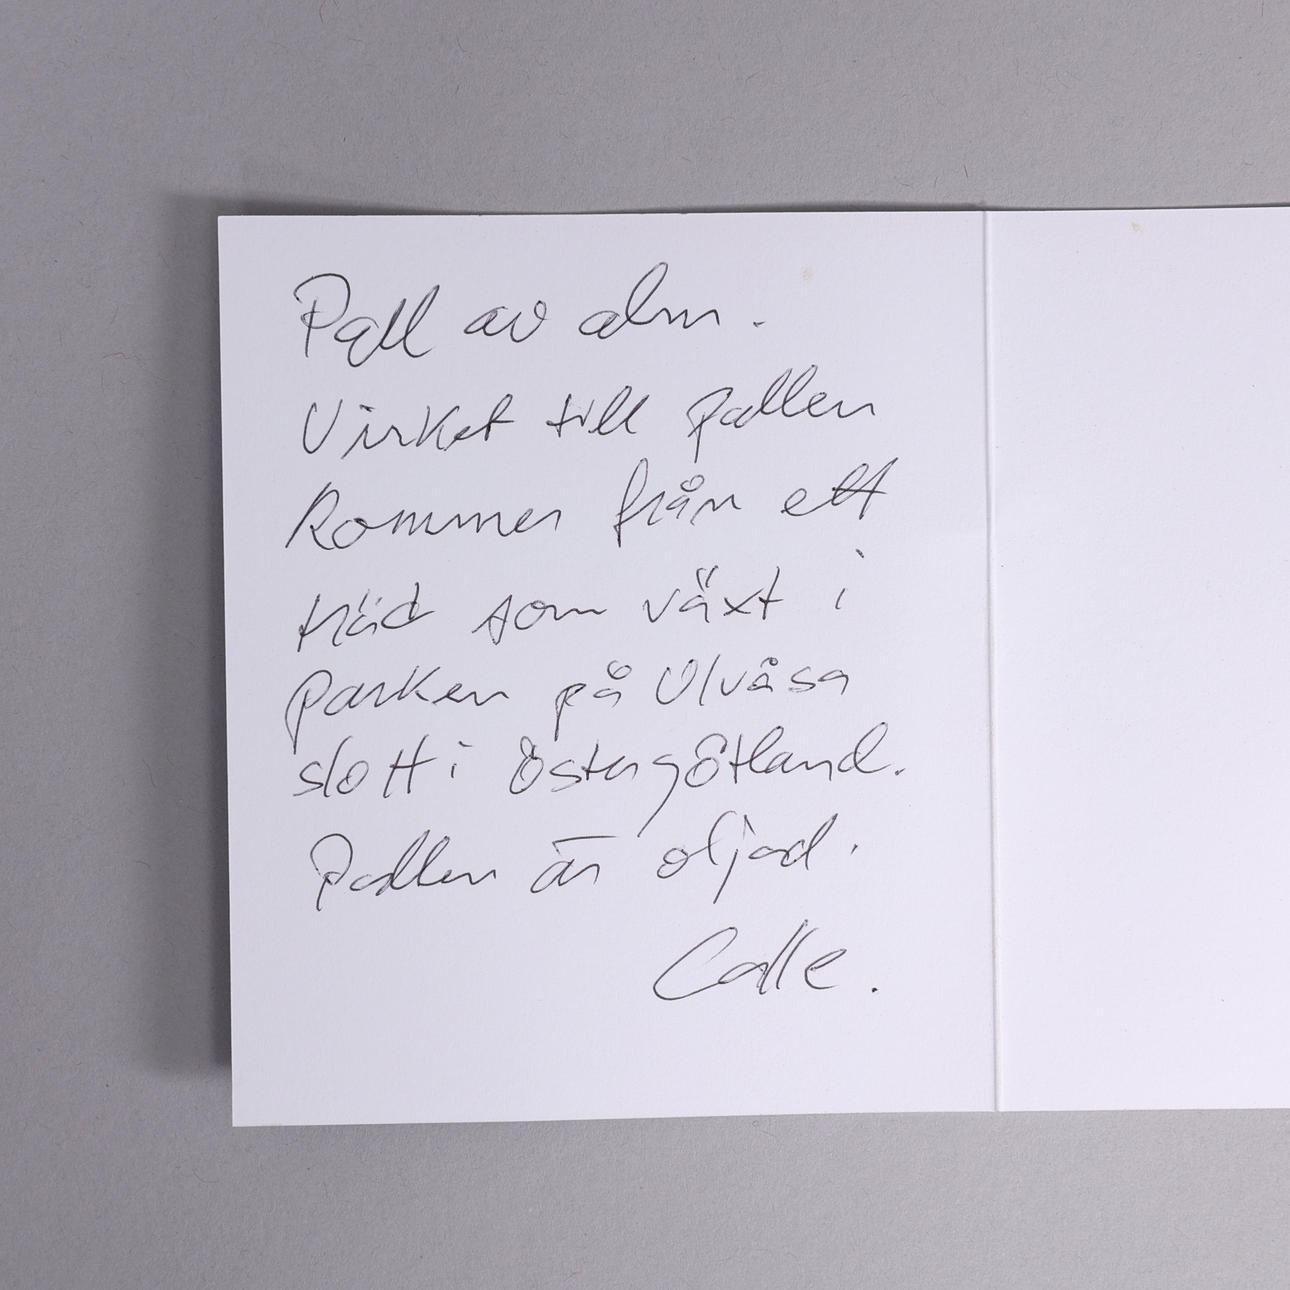 Pall av alm.
Virket till pallen
kommer från ett
träd som växt i
parken på Ulvåsa
slott i östergötland.
Pallen är oljad.
Calle.